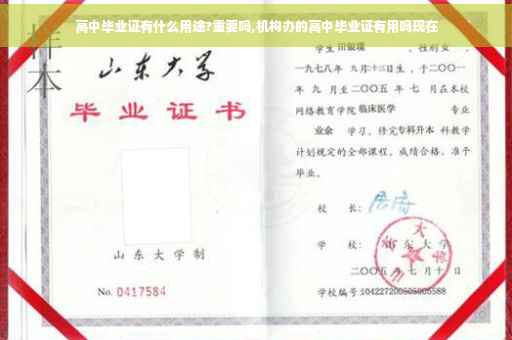 高中毕业证有什么用途?重要吗,机构办的高中毕业证有用吗现在
样本
山东大学
毕业证书
山东大学制
No. 0417584
学生 田银瑞 , 性别 女 ,
一九七八年 九月十三日生,于二〇〇一
年 九 月至二〇〇五 年 七 月在本校
网络教育学院 临床医学 专业
业余 学习,修完专科升本 科教学
计划规定的全部课程,成绩合格,准予
毕业。
校 长:
学 校: 山东大学
二〇〇五 年 七 月十 日
学校编号:104227200505005588